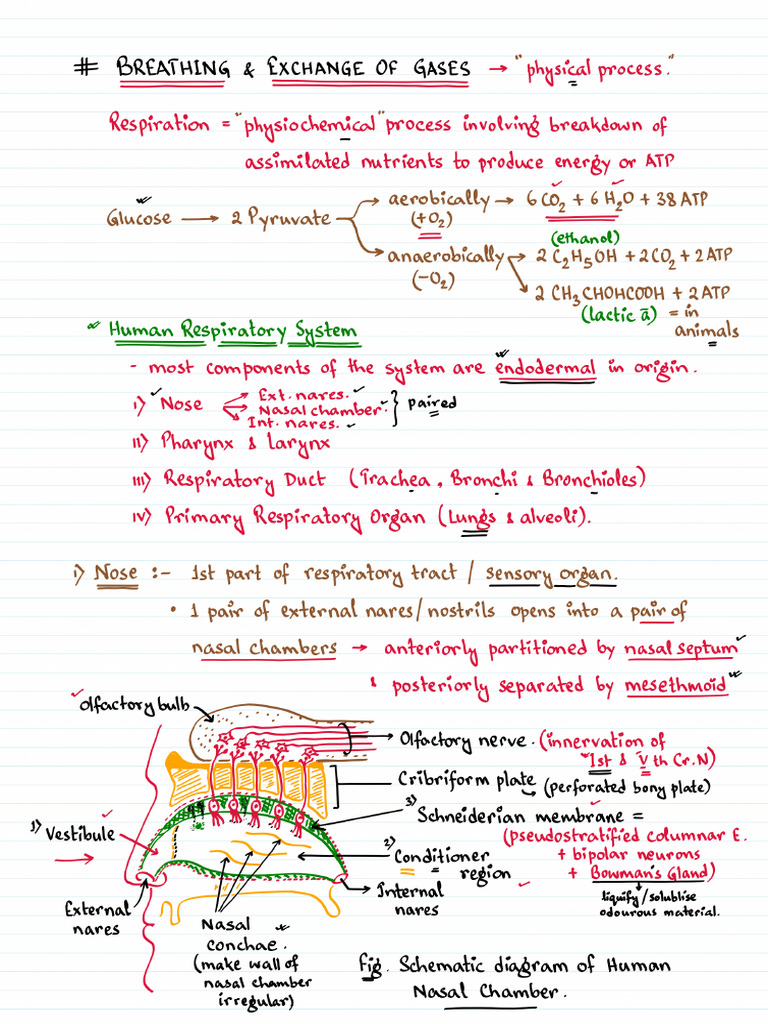 # BREATHING & EXCHANGE OF GASES → "physical process."
Respiration = "physiochemical" process involving breakdown of
assimilated nutrients to produce energy or ATP
Glucose → 2 Pyruvate
aerobically → 6 CO₂ + 6 H₂O + 38 ATP
(+O₂)
anaerobically → 2 C₂H₅OH + 2CO₂ + 2 ATP
(ethanol)
(-O₂)
2 CH₃CHOHCOOH + 2 ATP
(lactic ā) = in
animals
Human Respiratory System
- most components of the system are endodermal in origin.
i) Nose
Ext. nares.
Nasal chamber.
Int. nares.
} paired
ii) Pharynx & Larynx
iii) Respiratory Duct (Trachea, Bronchi & Bronchioles)
iv) Primary Respiratory Organ (Lungs & alveoli).
i) Nose :- 1st part of respiratory tract / sensory organ.
• 1 pair of external nares/nostrils opens into a pair of
nasal chambers → anteriorly partitioned by nasal septum
& posteriorly separated by mesethmoid
Olfactory bulb
Olfactory nerve. (innervation of
1st & V th Cr.N)
Cribriform plate (perforated bony plate)
3) Schneiderian membrane =
(pseudostratified columnar E.
+ bipolar neurons
+ Bowman's Gland)
liquify/solublise
odourous material.
1) Vestibule
2) Conditioner
= region
Internal
nares
External
nares
Nasal
conchae.
(make wall of
nasal chamber
irregular)
fig. Schematic diagram of Human
Nasal Chamber.